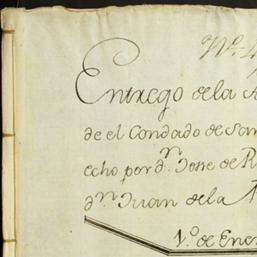 Nº. 
Entrego de la
de el Condado de San
echo por dn. Josse de
dn. Juan de la
1.º de Ener